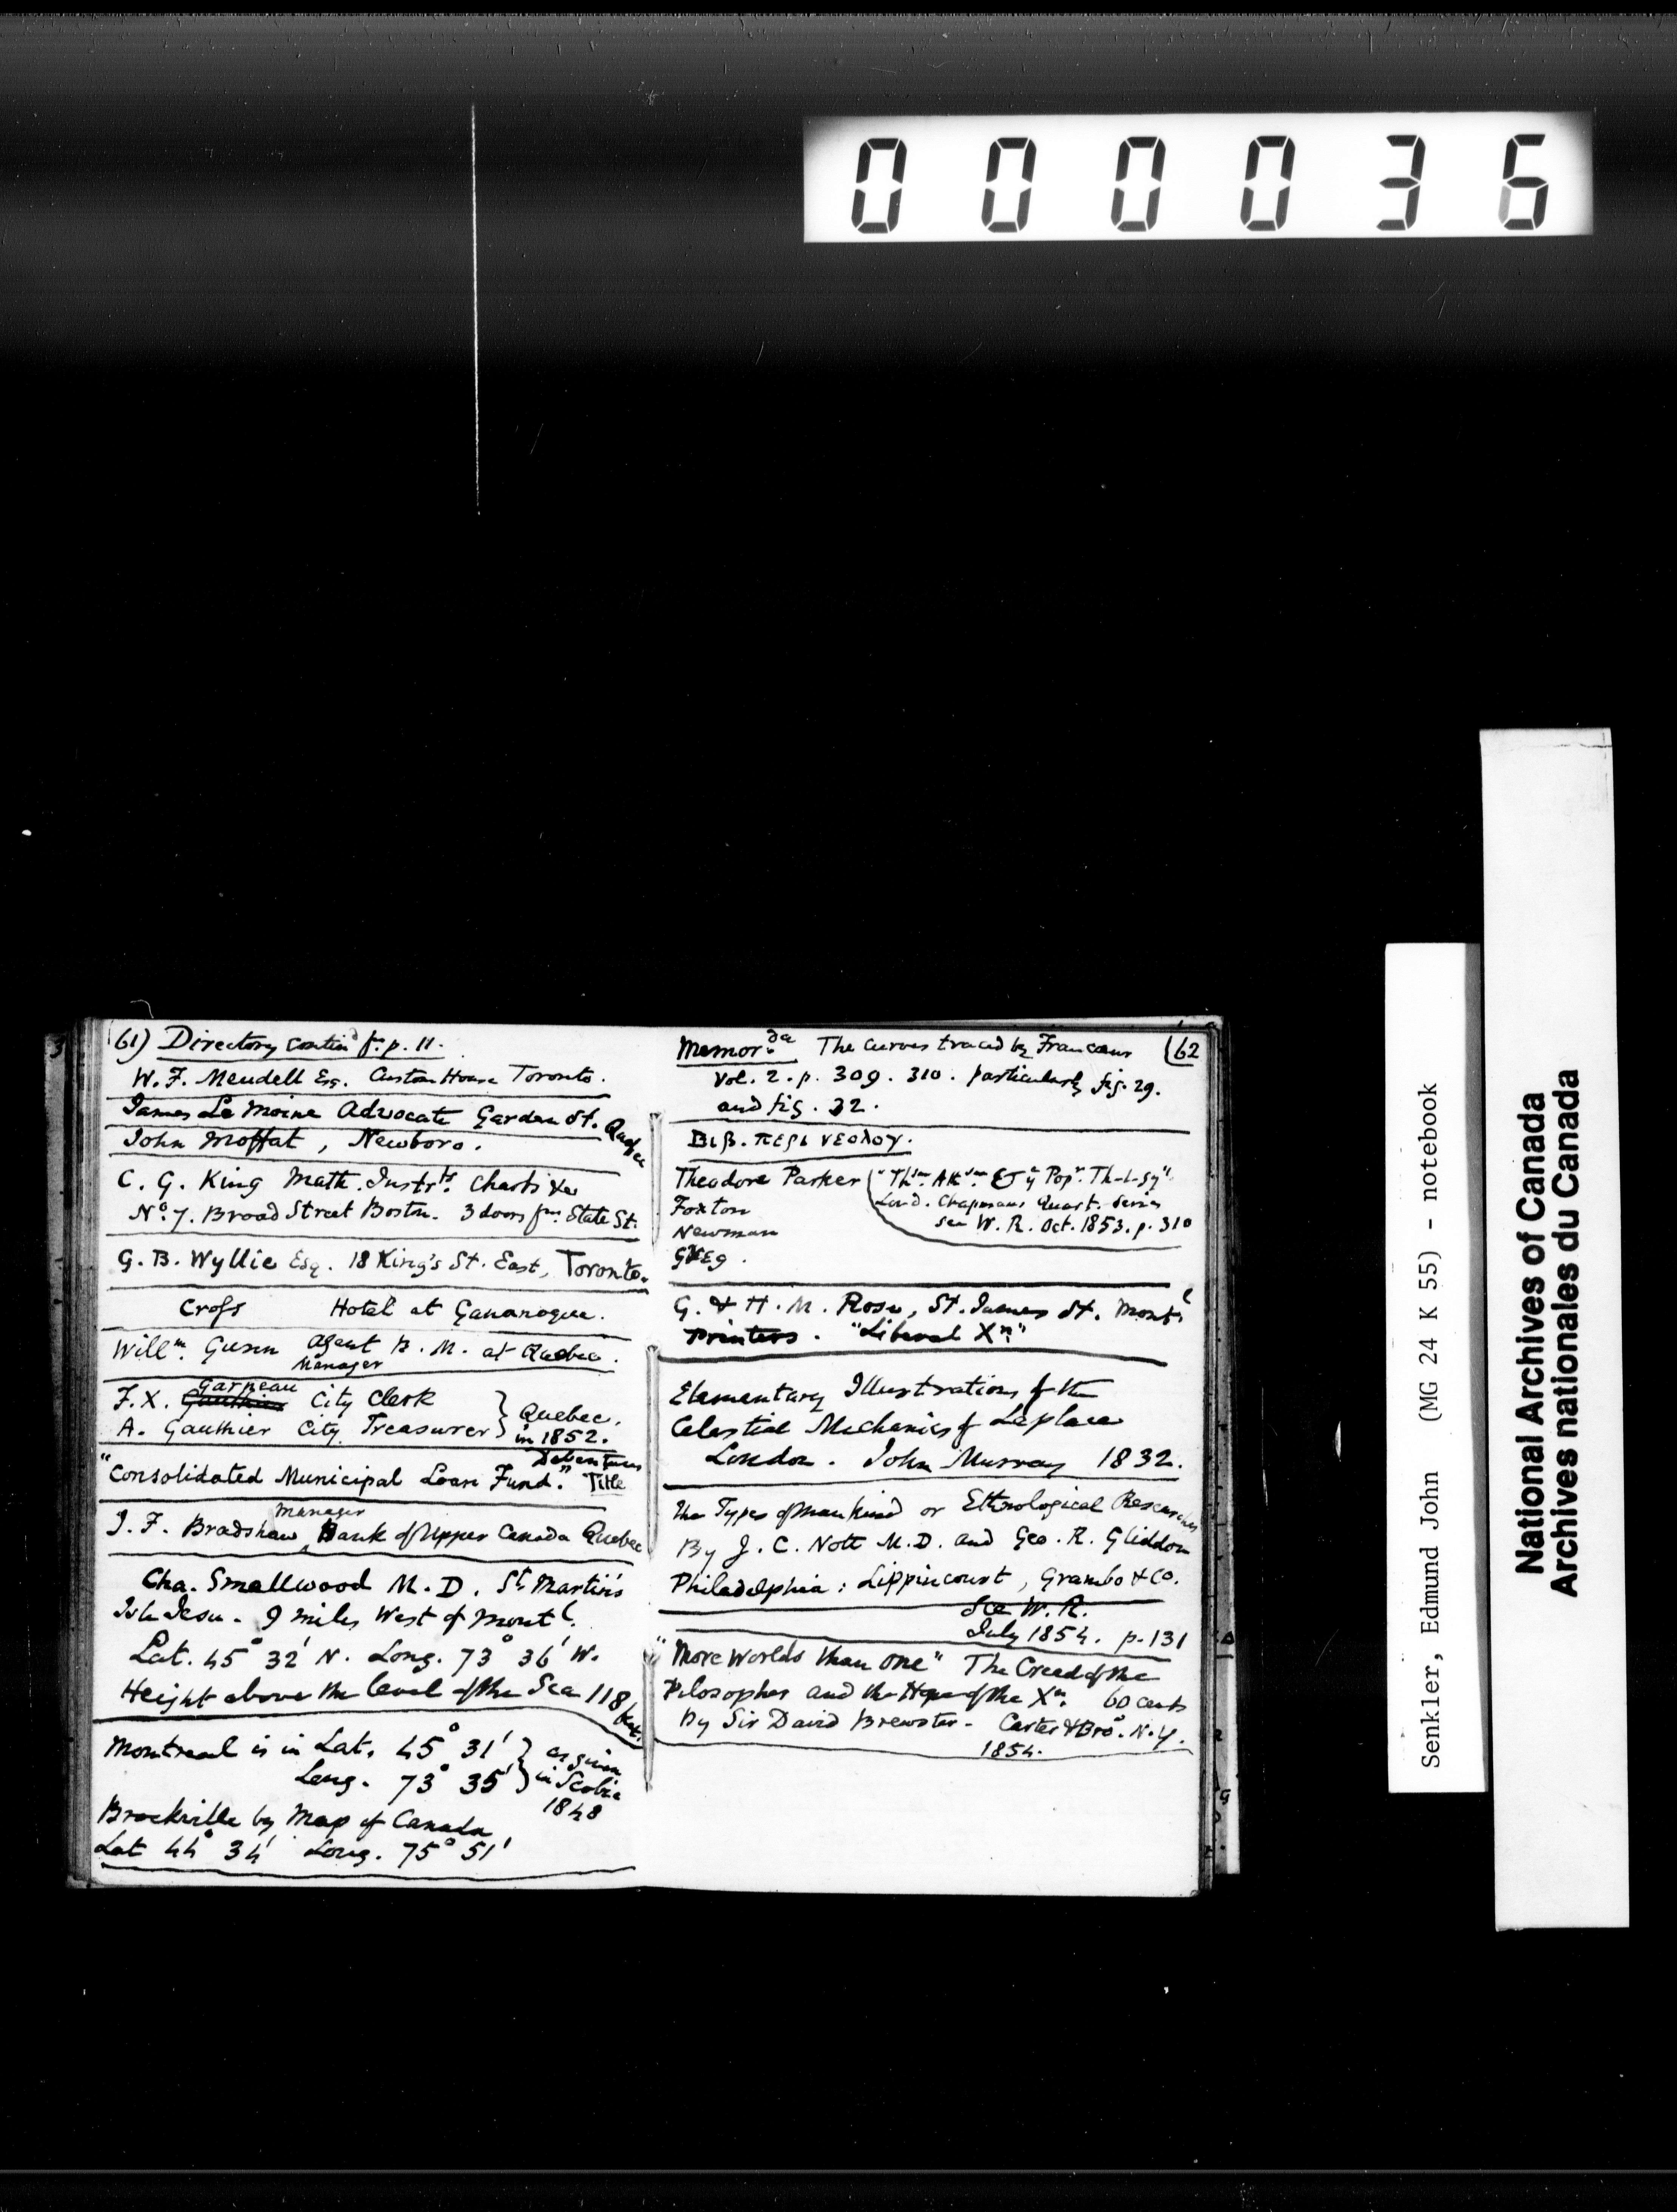 000036
61) Directory contin^d f^m p. 11.
W. F. Meudell Esq. Custom House Toronto.
James Le Moine Advocate Garden St. Quebec
John Moffat, Newboro.
C. G. King Math. Instr^ts. Charts &c
N^o. 7. Broad Street Boston. 3 doors f^m. State St.
G. B. Wyllie Esq. 18 King's St. East, Toronto.
Crofs Hotel at Gananoque.
Will^m. Gunn Agent B. M. at Quebec.
Manager
F. X. Gauthier Garneau City Clerk
A. Gauthier City Treasurer } Quebec. in 1852.
Debentures
"Consolidated Municipal Loan Fund." Title
manager
J. F. Bradshaw, Bank of Upper Canada Quebec
Cha. Smallwood M.D. St. Martin's
Isle Jesu. 9 miles West of Mont^l.
Lat. 45° 32' N. Long. 73° 36' W.
Height above the level of the Sea 118 feet.
Montreal is in Lat. 45° 31' } as given
Long. 73° 35' } in Scobie
1848
Brockville by Map of Canada
Lat 44° 34' Long. 75° 51'
Memor^da. The curves traced by Francœur 62
Vol. 2. p. 309. 310. particularly fig. 29.
and fig. 32.
Βιβ. περι νεολογ.
Theodore Parker ("Th^sm. Ath^sm. & y^e Pop^r. Th-l-gy"
Foxton Lond. Chapmans Quart. Series
Newman see W. R. Oct. 1853. p. 310
Greg.
G. & H. M. Rose, St. James St. Mont^l
Printers. "Liberal X^n."
Elementary Illustrations of the
Celestial Mechanics of Laplace
London. John Murray 1832.
The Types of Mankind or Ethnological Researches
By J. C. Nott M.D. and Geo. R. Gliddon
Philadelphia: Lippincourt, Grambo & Co.
See W. R.
July 1854. p. 131
"More Worlds than One" The Creed of the
Pilosopher and the Hope of the X^n. 60 cents
By Sir David Brewster. Carter & Bro^s. N.Y.
1854.
Senkler, Edmund John (MG 24 K 55) - notebook
National Archives of Canada
Archives nationales du Canada